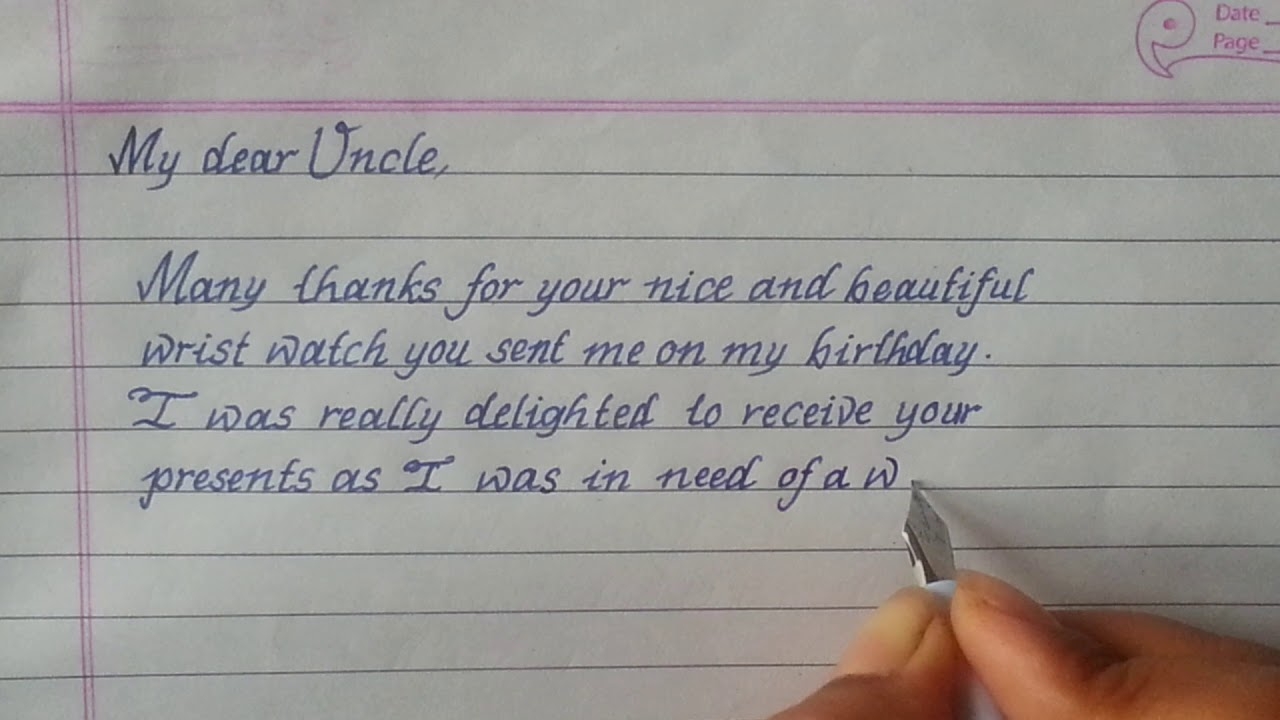 Date
Page
My dear Uncle,
Many thanks for your nice and beautiful
wrist watch you sent me on my birthday.
I was really delighted to receive your
presents as I was in need of a w